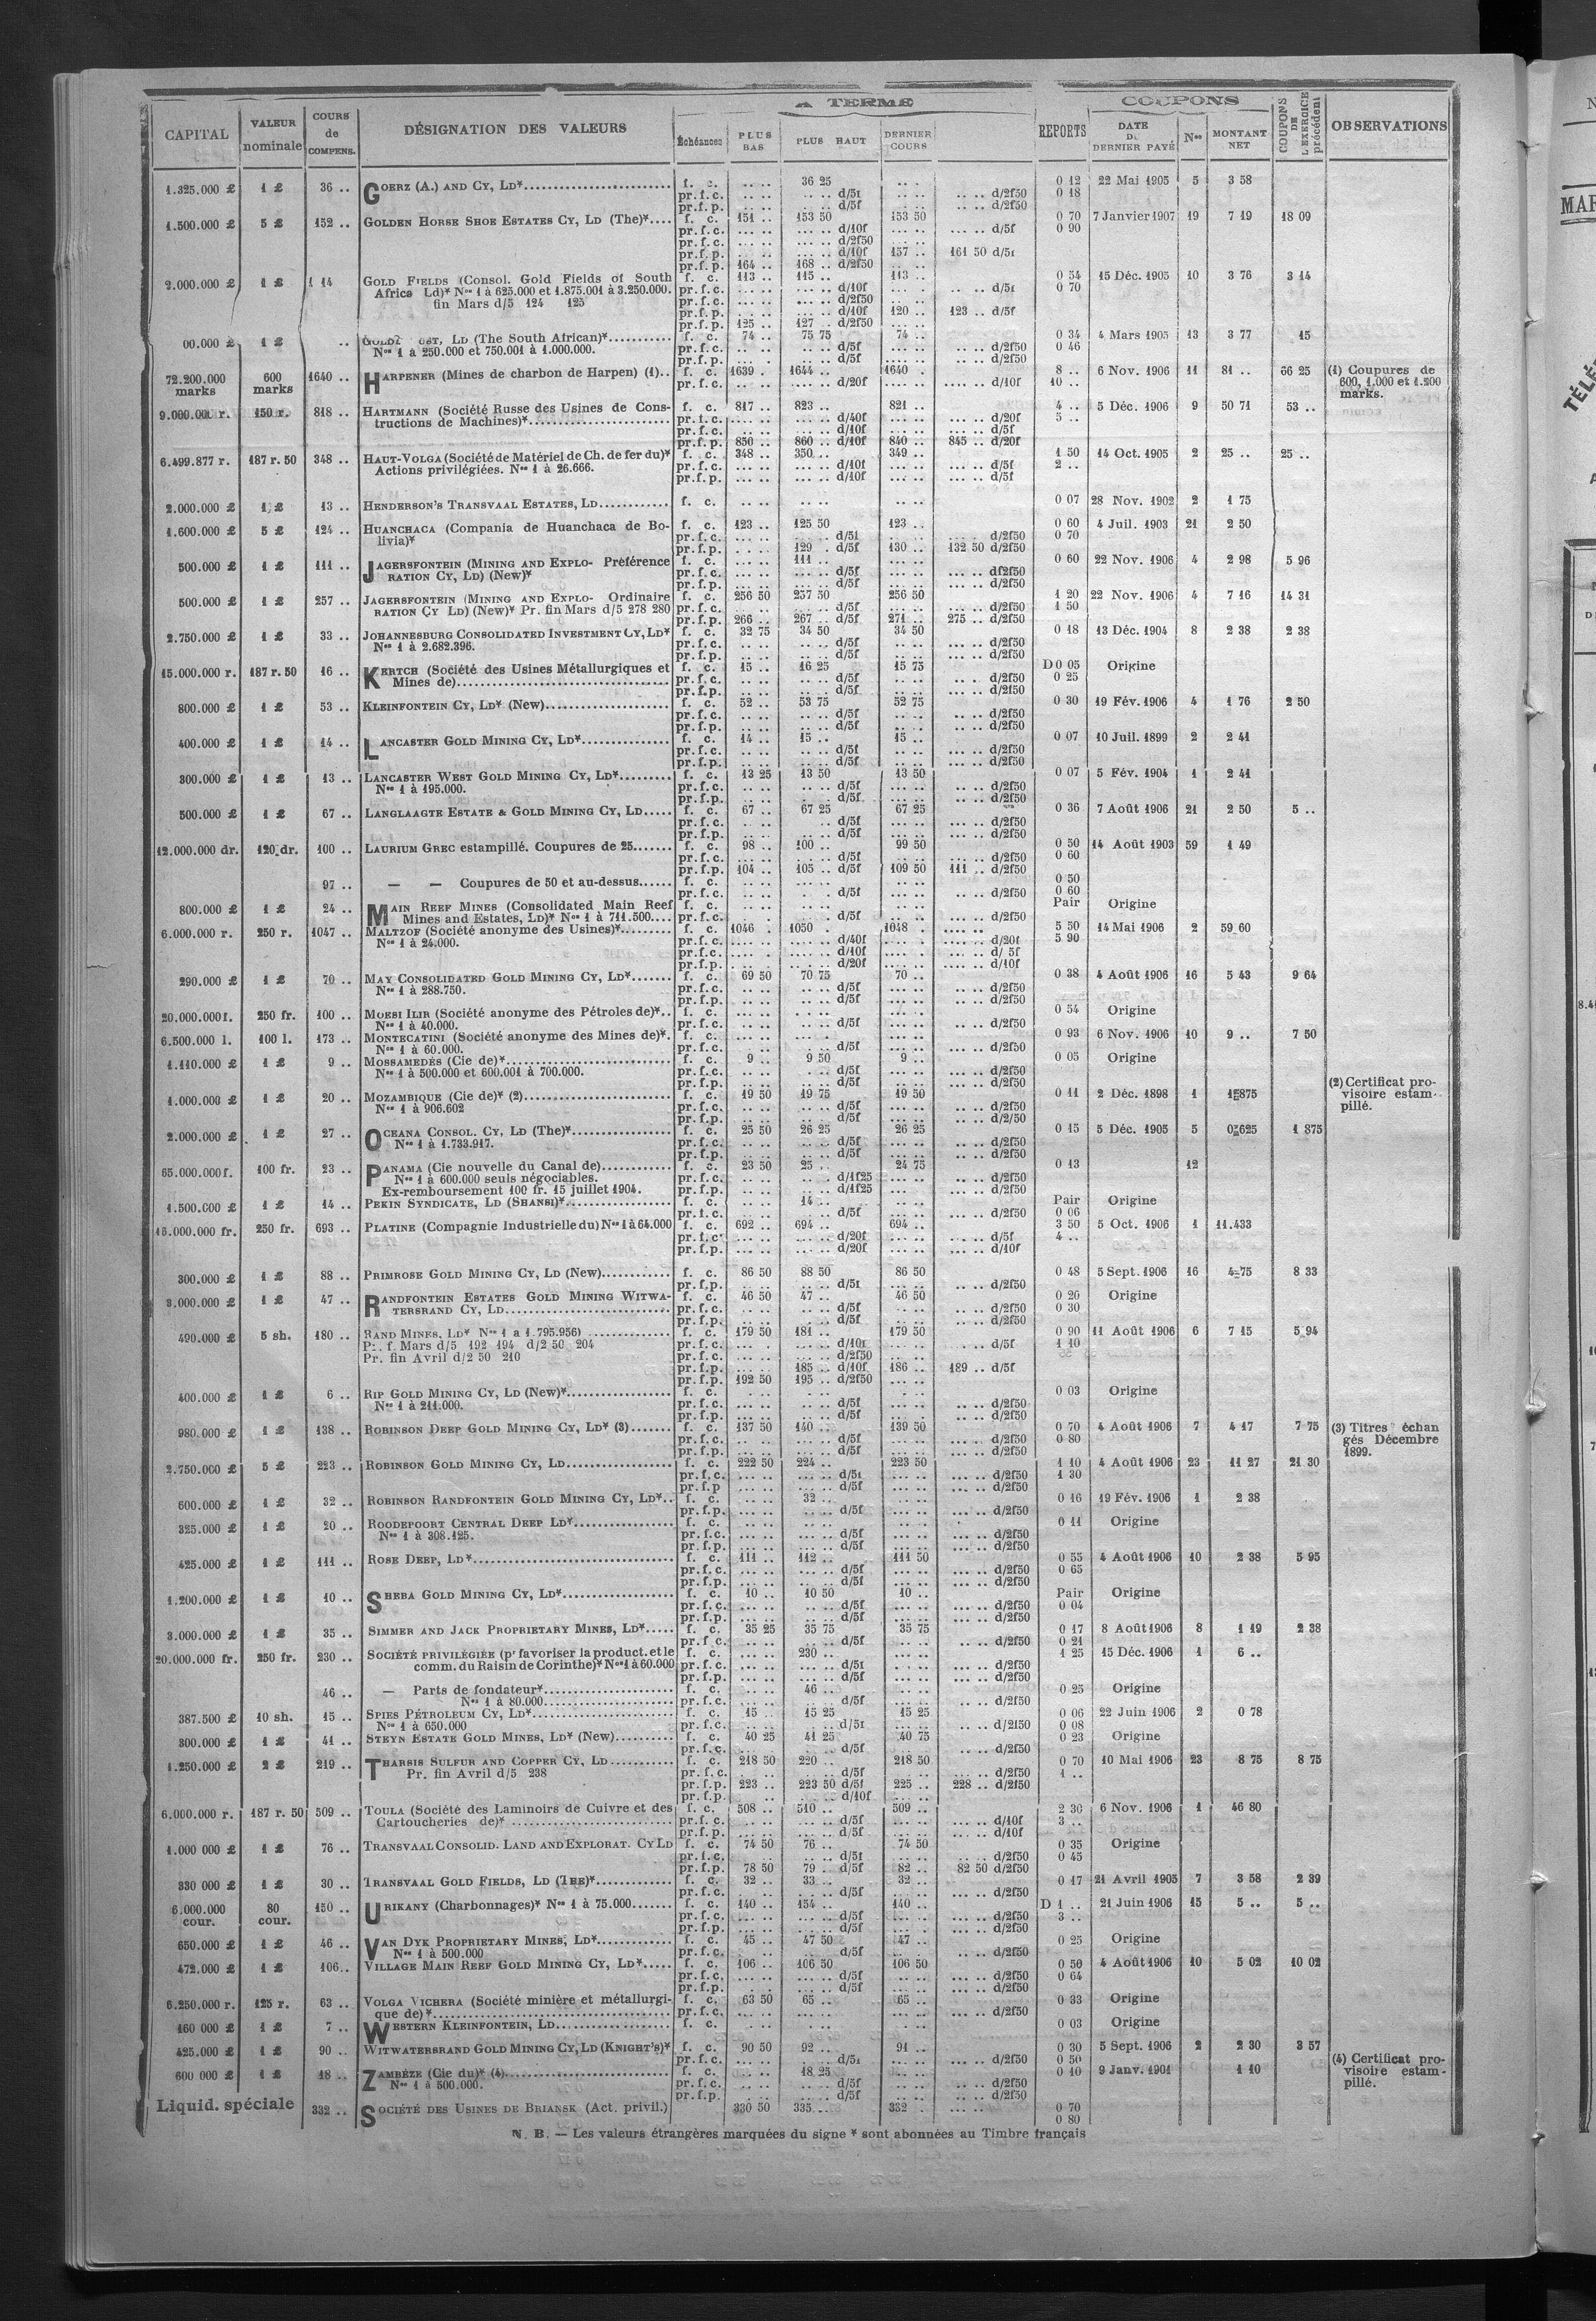 A TERME COUPONS
CAPITAL VALEUR nominale COURS de COMPENS. DÉSIGNATION DES VALEURS Échéances PLUS BAS PLUS HAUT DERNIER COURS REPORTS DATE DU DERNIER PAYÉ Nos MONTANT NET COUPONS DE L'EXERCICE précédent OBSERVATIONS
1.325.000 £ 1 £ 36 .. GOERZ (A.) AND CY, LD* f. c. 36 25 0 12 22 Mai 1905 5 3 58
pr.f.c. d/5f d/2f50 0 18
pr.f.p. d/5f d/2f50
1.500.000 £ 5 £ 152 .. GOLDEN HORSE SHOE ESTATES CY, LD (The)* f. c. 151 .. 153 50 153 50 0 70 7 Janvier 1907 19 7 19 18 09
pr.f.c. d/10f d/5f 0 90
pr.f.c. d/2f50
pr.f.p. d/10f 157 .. 161 50 d/5f
pr.f.p. 164 .. 168 .. d/2f50
2.000.000 £ 1 £ 114 GOLD FIELDS (Consol. Gold Fields of South f. c. 113 .. 115 .. 113 .. 0 54 15 Déc. 1905 10 3 76 3 14
Africa Ld)* Nos 1 à 625.000 et 1.875.001 à 3.250.000. pr.f.c. d/10f d/5f 0 70
fin Mars d/5 124 125 pr.f.c. d/2f50
pr.f.p. d/10f 120 .. 123 .. d/5f
pr.f.p. 125 .. 127 .. d/2f50
00.000 £ 1 £ .. LD (The South African)* f. c. 74 .. 75 75 74 .. 0 34 4 Mars 1905 13 3 77 15
Nos 1 à 250.000 et 750.001 à 1.000.000. pr.f.c. d/5f d/2f50 0 46
pr.f.p. d/5f d/2f50
72.200.000 marks 600 marks 1640 .. HARPENER (Mines de charbon de Harpen) (1).. f. c. 1639 . 1644 .. 1640 . 8 .. 6 Nov. 1906 11 81 .. 66 25 (1) Coupures de
pr.f.c. d/20f d/10f 10 .. 600, 1.000 et 1.200
marks.
9.000.000 r. 150 r. 818 .. HARTMANN (Société Russe des Usines de Cons- f. c. 817 .. 823 .. 821 .. 4 .. 5 Déc. 1906 9 50 71 53 ..
tructions de Machines)* pr.f.c. d/40f d/20f 5 ..
pr.f.c. d/10f d/5f
pr.f.p. 850 .. 860 .. d/10f 840 .. 845 .. d/20f
6.499.877 r. 187 r. 50 348 .. HAUT-VOLGA (Société de Matériel de Ch. de fer du)* f. c. 348 .. 350 .. 349 .. 1 50 14 Oct. 1905 2 25 .. 25 ..
Actions privilégiées. Nos 1 à 26.666. pr.f.c. d/10f d/5f 2 ..
pr.f.p. d/10f d/5f
2.000.000 £ 1 £ 13 .. HENDERSON'S TRANSVAAL ESTATES, LD f. c. 0 07 28 Nov. 1902 2 1 75
1.600.000 £ 5 £ 124 .. HUANCHACA (Compania de Huanchaca de Bo- f. c. 123 .. 125 50 123 .. 0 60 4 Juil. 1903 21 2 50
livia)* pr.f.c. d/5f d/2f50 0 70
pr.f.p. 129 . d/5f 130 .. 132 50 d/2f50
500.000 £ 1 £ 111 .. JAGERSFONTEIN (MINING AND EXPLO- Préférence f. c. 111 .. 0 60 22 Nov. 1906 4 2 98 5 96
RATION CY, LD) (New)* pr.f.c. d/5f d/2f50
pr.f.p. d/5f d/2f50
500.000 £ 1 £ 257 .. JAGERSFONTEIN (MINING AND EXPLO- Ordinaire f. c. 256 50 257 50 256 50 1 20 22 Nov. 1906 4 7 16 14 31
RATION CY LD) (New)* Pr. fin Mars d/5 278 280 pr.f.c. d/5f d/2f50 1 50
pr.f.p. 266 .. 267 .. d/5f 271 .. 275 .. d/2f50
2.750.000 £ 1 £ 33 .. JOHANNESBURG CONSOLIDATED INVESTMENT CY, LD* f. c. 32 75 34 50 34 50 0 18 13 Déc. 1904 8 2 38 2 38
Nos 1 à 2.682.396. pr.f.c. d/5f d/2f50
pr.f.p. d/5f d/2f50
15.000.000 r. 187 r. 50 16 .. KERTCH (Société des Usines Métallurgiques et f. c. 15 .. 16 25 15 75 D 0 05 Origine
Mines de) pr.f.c. d/5f d/2f50 0 25
pr.f.p. d/5f d/2f50
800.000 £ 1 £ 53 .. KLEINFONTEIN CY, LD* (New) f. c. 52 .. 53 75 52 75 0 30 19 Fév. 1906 4 1 76 2 50
pr.f.c. d/5f d/2f50
pr.f.p. d/5f d/2f50
400.000 £ 1 £ 14 .. LANCASTER GOLD MINING CY, LD* f. c. 14 .. 15 .. 15 .. 0 07 10 Juil. 1899 2 2 41
pr.f.c. d/5f d/2f50
pr.f.p. d/5f d/2f50
300.000 £ 1 £ 13 .. LANCASTER WEST GOLD MINING CY, LD* f. c. 13 25 13 50 13 50 0 07 5 Fév. 1904 1 2 41
Nos 1 à 195.000. pr.f.c. d/5f d/2f50
pr.f.p. d/5f d/2f50
500.000 £ 1 £ 67 .. LANGLAAGTE ESTATE & GOLD MINING CY, LD f. c. 67 .. 67 25 67 25 0 36 7 Août 1906 21 2 50 5 ..
pr.f.c. d/5f d/2f50
pr.f.p. d/5f d/2f50
12.000.000 dr. 120 dr. 100 .. LAURIUM GREC estampillé. Coupures de 25 f. c. 98 .. 100 .. 99 50 0 50 14 Août 1903 59 1 49
pr.f.c. d/5f d/2f50 0 60
pr.f.p. 104 .. 105 .. d/5f 109 50 111 .. d/2f50
97 .. — — Coupures de 50 et au-dessus f. c. 0 50
pr.f.c. d/5f d/2f50 0 60
800.000 £ 1 £ 24 .. MAIN REEF MINES (Consolidated Main Reef f. c. Pair Origine
Mines and Estates, LD)* Nos 1 à 711.500 pr.f.c. d/5f d/2f50
6.000.000 r. 250 r. 1047 .. MALTZOF (Société anonyme des Usines)* f. c. 1046 . 1050 . 1048 . 5 50 14 Mai 1906 2 59 60
Nos 1 à 24.000. pr.f.c. d/40f d/20f 5 90
pr.f.c. d/10f d/ 5f
pr.f.p. d/20f d/10f
290.000 £ 1 £ 70 .. MAY CONSOLIDATED GOLD MINING CY, LD* f. c. 69 50 70 75 70 .. 0 38 4 Août 1906 16 5 43 9 64
Nos 1 à 288.750. pr.f.c. d/5f d/2f50
pr.f.p. d/5f d/2f50
20.000.000 f. 250 fr. 100 .. MOESI ILIR (Société anonyme des Pétroles de)* f. c. 0 54 Origine
Nos 1 à 40.000. pr.f.c. d/5f d/2f50
6.500.000 l. 100 l. 173 .. MONTECATINI (Société anonyme des Mines de)*. f. c. 0 93 6 Nov. 1906 10 9 .. 7 50
Nos 1 à 60.000. pr.f.c. d/5f d/2f50
1.110.000 £ 1 £ 9 .. MOSSAMEDÈS (Cie de)* f. c. 9 9 50 9 .. 0 05 Origine
Nos 1 à 500.000 et 600.001 à 700.000. pr.f.c. d/5f d/2f50
pr.f.p. d/5f d/2f50
1.000.000 £ 1 £ 20 .. MOZAMBIQUE (Cie de)* (2) f. c. 19 50 19 75 19 50 0 11 2 Déc. 1898 1 1f875 (2) Certificat pro-
Nos 1 à 906.602 pr.f.c. d/5f d/2f50 visoire estam-
pr.f.p. d/5f d/2/50 pillé.
2.000.000 £ 1 £ 27 .. OCEANA CONSOL. CY, LD (The)* f. c. 25 50 26 25 26 25 0 15 5 Déc. 1905 5 0f625 1 875
Nos 1 à 1.733.917. pr.f.c. d/5f d/2f50
pr.f.p. d/5f d/2f50
65.000.000 f. 100 fr. 23 .. PANAMA (Cie nouvelle du Canal de) f. c. 23 50 25 .. 24 75 0 13 12
Nos 1 à 600.000 seuls négociables. pr.f.c. d/1f25 d/2f50
Ex-remboursement 100 fr. 15 juillet 1904. pr.f.p. d/1f25 d/2f50
1.500.000 £ 1 £ 14 .. PEKIN SYNDICATE, LD (SHANSI)* f. c. 14 .. Pair Origine
pr.f.c. d/5f d/2f50 0 06
16.000.000 fr. 250 fr. 693 .. PLATINE (Compagnie Industrielle du) Nos 1 à 64.000 f. c. 692 .. 694 .. 694 .. 3 50 5 Oct. 1906 1 11.433
pr.f.c. d/20f d/5f 4 ..
pr.f.p. d/20f d/10f
300.000 £ 1 £ 88 .. PRIMROSE GOLD MINING CY, LD (New) f. c. 86 50 88 50 86 50 0 48 5 Sept. 1906 16 4 75 8 33
pr.f.p. d/5f d/2f50
3.000.000 £ 1 £ 47 .. RANDFONTEIN ESTATES GOLD MINING WITWA- f. c. 46 50 47 .. 46 50 0 26 Origine
TERSRAND CY, LD pr.f.c. d/5f d/2f50 0 30
pr.f.p. d/5f d/2f50
490.000 £ 5 sh. 180 .. RAND MINES, LD* Nos 1 a 1.795.956) f. c. 179 50 181 .. 179 50 0 90 11 Août 1906 6 7 15 5 94
Pr. f. Mars d/5 192 194 d/2 50 204 pr.f.c. d/10f d/5f 1 10
Pr. fin Avril d/2 50 210 pr.f.c. d/2f50
pr.f.p. 185 .. d/10f 186 .. 189 .. d/5f
pr.f.p. 192 50 195 .. d/2f50
400.000 £ 1 £ 6 .. RIP GOLD MINING CY, LD (New)* f. c. 0 03 Origine
Nos 1 à 211.000. pr.f.c. d/5f d/2f50
pr.f.p. d/5f d/2f50
980.000 £ 1 £ 138 .. ROBINSON DEEP GOLD MINING CY, LD* (3) f. c. 137 50 140 .. 139 50 0 70 4 Août 1906 7 4 17 7 75 (3) Titres échan
pr.f.c. d/5f d/2f50 0 80 gés Décembre
pr.f.p. d/5f d/2f50 1899.
2.750.000 £ 5 £ 223 .. ROBINSON GOLD MINING CY, LD f. c. 222 50 224 .. 223 50 1 10 4 Août 1906 23 11 27 21 30
pr.f.c. d/5f d/2f50 1 30
pr.f.p d/5f d/2f50
600.000 £ 1 £ 32 .. ROBINSON RANDFONTEIN GOLD MINING CY, LD* f. c. 32 .. 0 16 19 Fév. 1906 1 2 38
pr.f.p. d/5f d/2f50
325.000 £ 1 £ 20 .. ROODEPOORT CENTRAL DEEP LD* f. c. 0 11 Origine
Nos 1 à 308.125. pr.f.c. d/5f d/2f50
pr.f.p. d/5f d/2f50
425.000 £ 1 £ 111 .. ROSE DEEP, LD* f. c. 111 .. 112 .. 111 50 0 55 4 Août 1906 10 2 38 5 95
pr.f.c. d/5f d/2f50 0 65
pr.f.p. d/5f d/2f50
1.200.000 £ 1 £ 10 .. SHEBA GOLD MINING CY, LD* f. c. 10 .. 10 50 10 .. Pair Origine
pr.f.c. d/5f d/2f50 0 04
pr.f.p. d/5f d/2f50
3.000.000 £ 1 £ 35 .. SIMMER AND JACK PROPRIETARY MINES, LD* f. c. 35 25 35 75 35 75 0 17 8 Août 1906 8 1 19 2 38
pr.f.c. d/5f d/2f50 0 21
20.000.000 fr. 250 fr. 230 .. SOCIÉTÉ PRIVILÉGIÉE (pr favoriser la product. et le f. c. 230 .. 1 25 15 Déc. 1906 1 6 ..
comm. du Raisin de Corinthe)* Nos 1 à 60.000 pr.f.c. d/5f d/2f50
pr.f.p. d/5f d/2f50
46 .. — Parts de fondateur* f. c. 46 .. 0 25 Origine
Nos 1 à 80.000 pr.f.c. d/5f d/2f50
387.500 £ 10 sh. 15 .. SPIES PÉTROLEUM CY, LD* f. c. 15 .. 15 25 15 25 0 06 22 Juin 1906 2 0 78
Nos 1 à 650.000 pr.f.c. d/5f d/2f50 0 08
300.000 £ 1 £ 41 .. STEYN ESTATE GOLD MINES, LD* (New) f. c. 40 25 41 25 40 75 0 23 Origine
pr.f.c. d/5f d/2f50
1.250.000 £ 2 £ 219 .. THARSIS SULFUR AND COPPER CY, LD f. c. 218 50 220 .. 218 50 0 70 10 Mai 1906 23 8 75 8 75
Pr. fin Avril d/5 238 pr.f.c. d/5f d/2f50 1 ..
pr.f.p. 223 .. 223 50 d/5f 225 .. 228 .. d/2f50
pr.f.p. d/10f
6.000.000 r. 187 r. 50 509 .. TOULA (Société des Laminoirs de Cuivre et des f. c. 508 .. 510 .. 509 .. 2 30 6 Nov. 1906 1 46 80
Cartoucheries de)* pr.f.c. d/5f d/10f 3 ..
pr.f.p. d/5f d/10f
1.000 000 £ 1 £ 76 .. TRANSVAAL CONSOLID. LAND AND EXPLORAT. CY LD f. c. 74 50 76 .. 74 50 0 35 Origine
pr.f.c. d/5f d/2f50 0 45
pr.f.p. 78 50 79 . d/5f 82 .. 82 50 d/2f50
330 000 £ 1 £ 30 .. TRANSVAAL GOLD FIELDS, LD (THE)* f. c. 32 .. 33 .. 32 .. 0 17 21 Avril 1905 7 3 58 2 39
pr.f.c. d/5f d/2f50
6.000.000 cour. 80 cour. 150 .. URIKANY (Charbonnages)* Nos 1 à 75.000 f. c. 140 .. 154 .. 140 .. D 1 .. 21 Juin 1906 15 5 .. 5 ..
pr.f.c. d/5f d/2f50 3 ..
pr.f.p. d/5f d/2f50
650.000 £ 1 £ 46 .. VAN DYK PROPRIETARY MINES, LD* f. c. 45 .. 47 50 47 .. 0 25 Origine
Nos 1 à 500.000 pr.f.c. d/5f d/2f50
472.000 £ 1 £ 106.. VILLAGE MAIN REEF GOLD MINING CY, LD* f. c. 106 .. 106 50 106 50 0 50 4 Août 1906 10 5 02 10 02
pr.f.c. d/5f d/2f50 0 64
pr.f.p. d/5f d/2f50
6.250.000 r. 125 r. 63 .. VOLGA VICHERA (Société minière et métallurgi- f. c. 63 50 65 .. 65 .. 0 33 Origine
que de)* pr.f.c. d/2f50
160 000 £ 1 £ 7 .. WESTERN KLEINFONTEIN, LD f. c. 0 03 Origine
425.000 £ 1 £ 90 .. WITWATERSRAND GOLD MINING CY, LD (KNIGHT'S)* f. c. 90 50 92 .. 91 .. 0 30 5 Sept. 1906 2 2 30 3 57
pr.f.c. d/5f d/2f50 0 50 (4) Certificat pro-
600 000 £ 1 £ 18 .. ZAMBÈZE (Cie du)* (4) f. c. 18 25 0 10 9 Janv. 1901 1 10 visoire estam-
Nos 1 à 500.000. pr.f.c. d/5f d/2f50 pillé.
pr.f.p. d/5f d/2f50
Liquid. spéciale 332 .. SOCIÉTÉ DES USINES DE BRIANSK (Act. privil.) 330 50 335 .. 332 . 0 70
0 80
N. B. — Les valeurs étrangères marquées du signe * sont abonnées au Timbre français